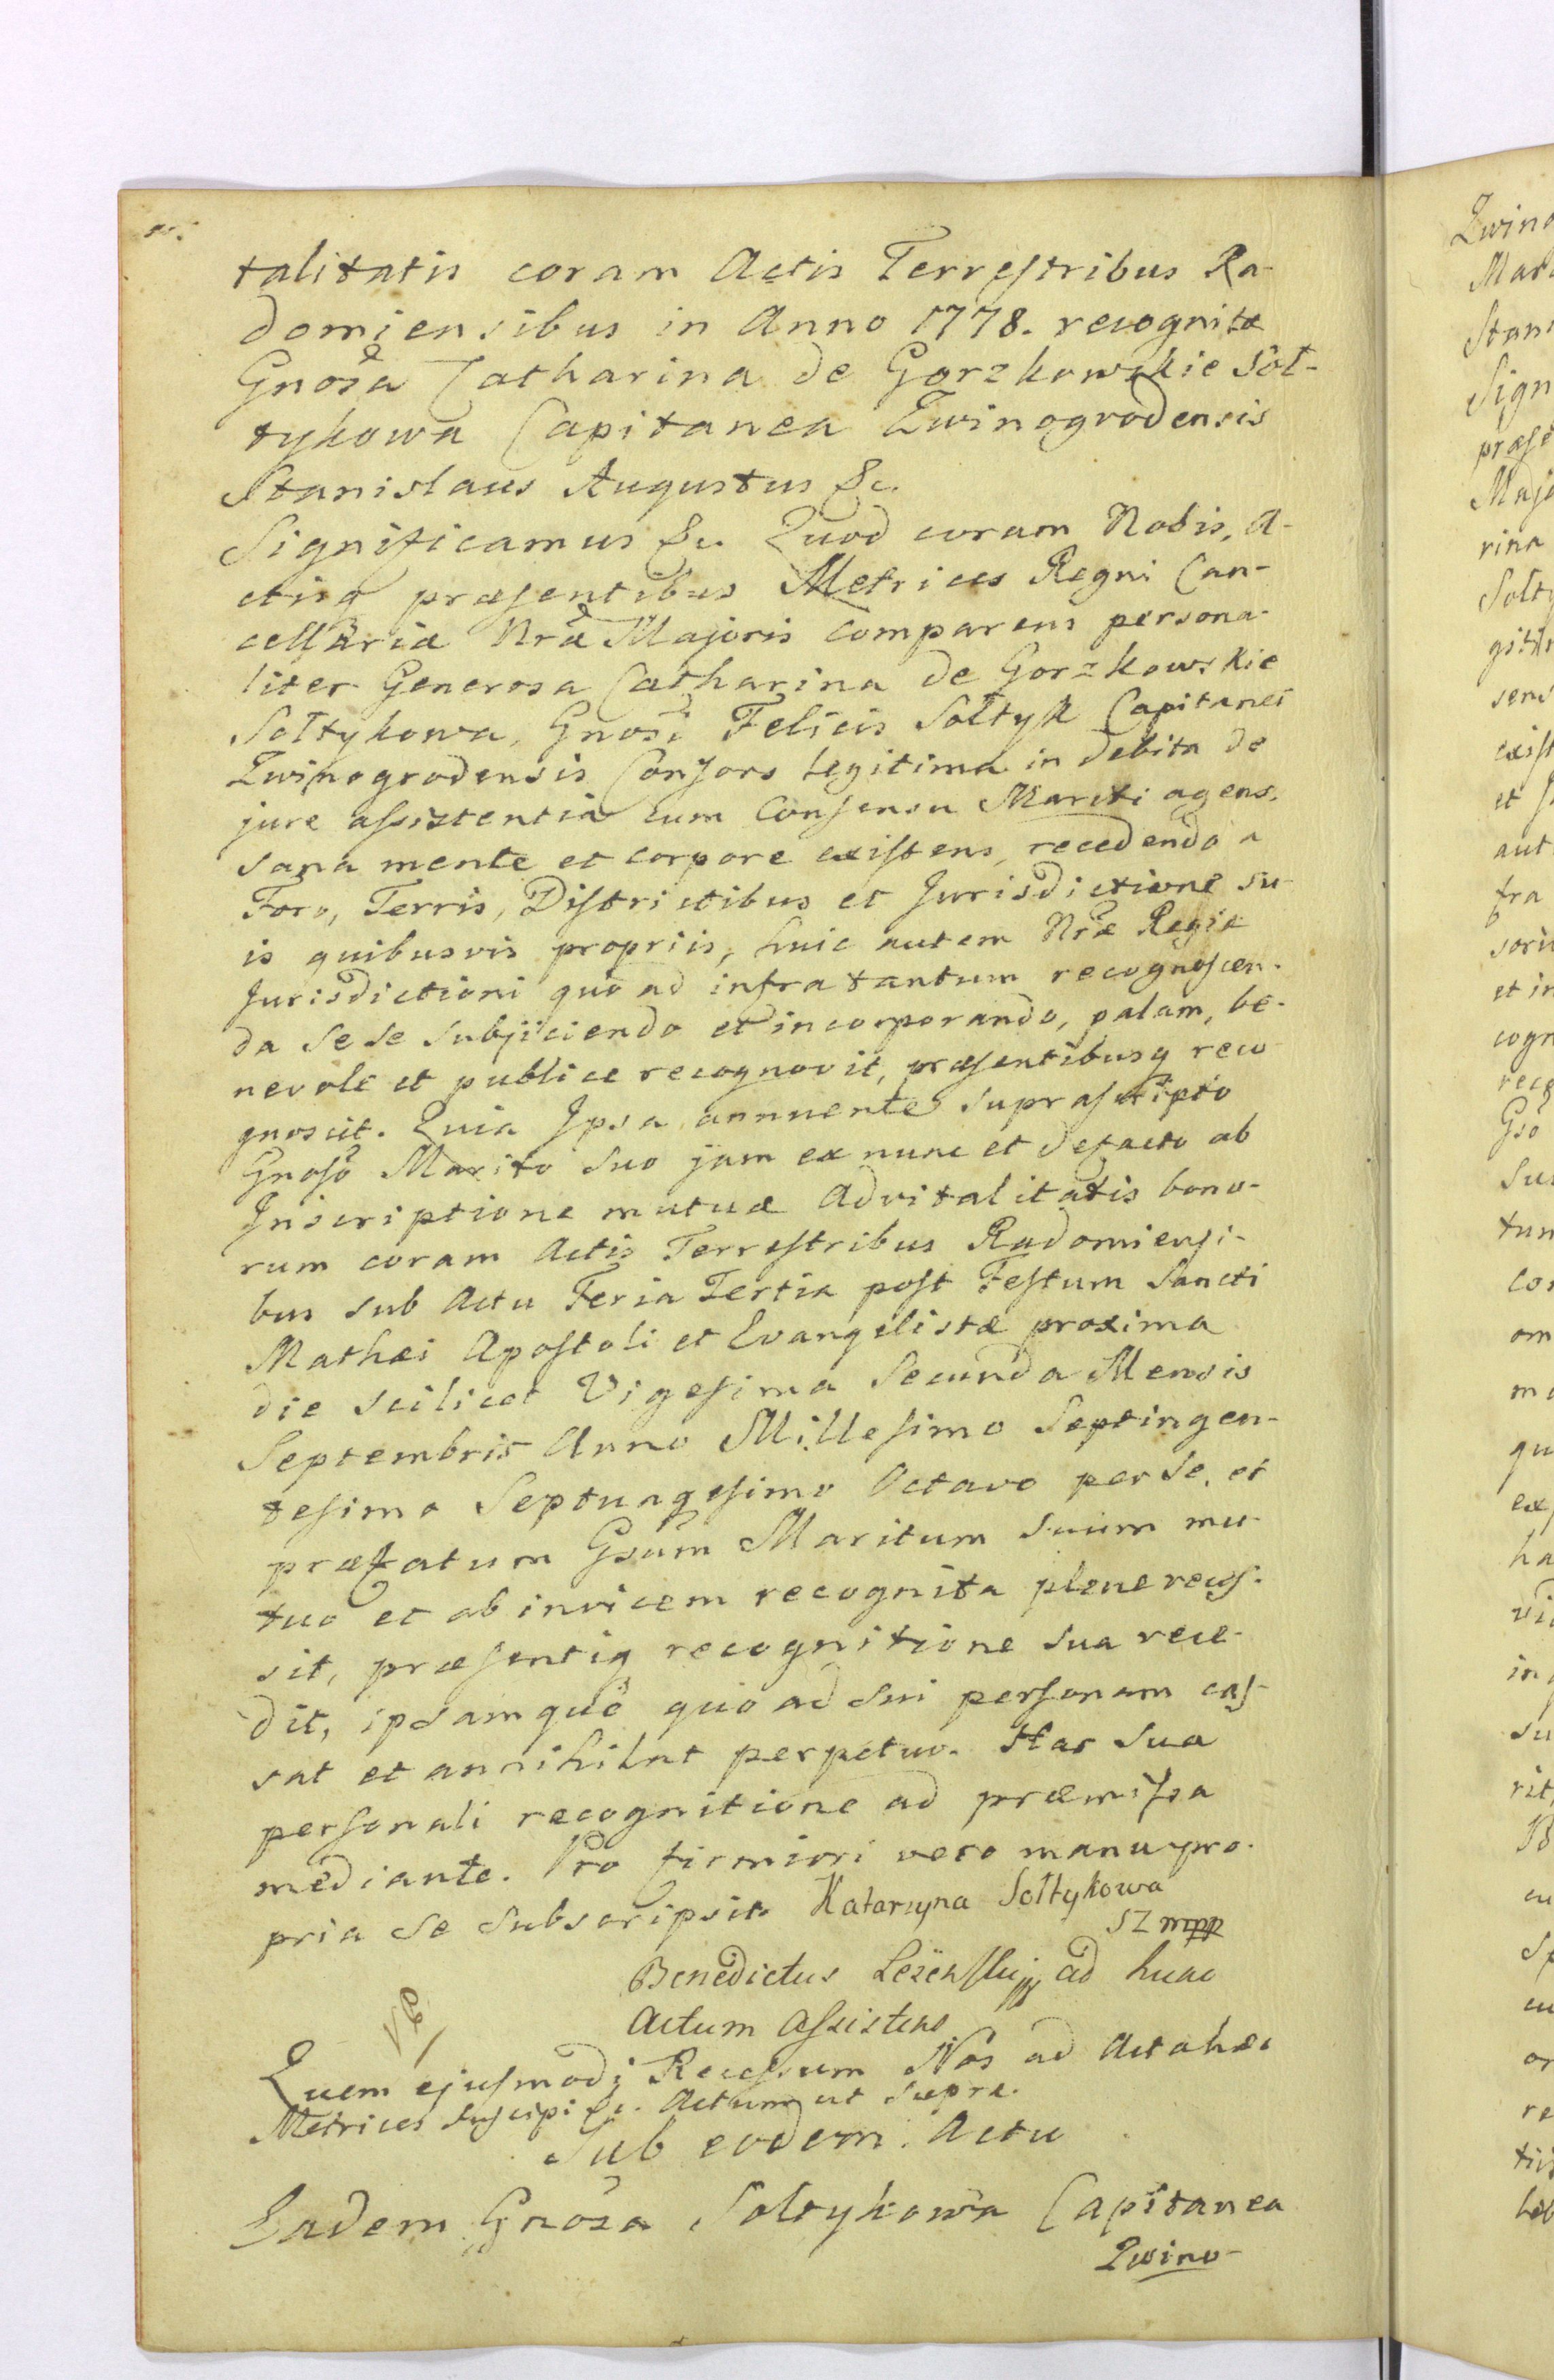 talitatis coram Actis Terrestribus Ra-
domiensibus in Anno 1778. recognitæ
Gnosa Catharina de Gorzkowskie Soł-
tykowa Capitanea Zwinogrodensis
Stanislaus Augustus &c.
Significamus &c. Quod coram Nobis, A-
ctisq præsentibus Metrices Regni Can-
cellariæ Nræ Majoris comparens persona-
liter Generosa Catharina de Gorzkowskie
Sołtykowa, Gnosi Felicis Sołtyk Capitanei
Zwinogrodensis Consors legitima in debita de
jure assistentia cum Consensu Mariti agens,
sana mente et corpore existens, recedendo a
Foro, Terris, Districtibus et Jurisdictione su-
is quibusvis propriis, huic autem Nræ Regiæ
Jurisdictioni quo ad infra tantum recognoscen-
da sese subjiciendo et incorporando, palam, be-
nevole et publice recognovit, præsentibusq reco-
gnoscit. Quia Ipsa annuente suprascripto
Gnoso Marito suo jam ex nunc et defacto ab
Inscriptione mutuæ Advitalitatis bono-
rum coram Actis Terrestribus Radomiensi-
bus sub Actu Feria Tertia post Festum Sancti
Mathæi Apostoli et Evangelistæ proxima
die scilicet Vigesima Secunda Mensis
Septembris Anno Millesimo Septingen-
tesimo Septuagesimo Octavo per se, et
præfatum Gsum Maritum suum mu-
tuo et ab invicem recognita plene reces-
sit, præsentiq recognitione sua rece-
dit, ipsamque quo ad sui personam cas-
sat et annihilat perpetuo. Hac sua
personali recognitione ad præmissa
mediante. Pro firmiori vero manu pro-
pria se subscripsit. Katarzyna Sołtykowa
SZ mpp
Benedictus ad hunc
Actum Assistens
Quem ejusmodi Recessum Nos ad Acta hæc
Metrices suscipi &c. Actum ut supra.
Sub eodem Actu
Eadem Gnosa Sołtykowa Capitanea
Zwino-
Zwino
Mat
Stani
Sign
præse
Majo
rina
Sołty
gitim
sens
exist
et
aut
fra
soriis
et in
cogn
recog
Gso
Su
tan
co
om
ma
qu
ex
ha
in
su
rit,
cu
re